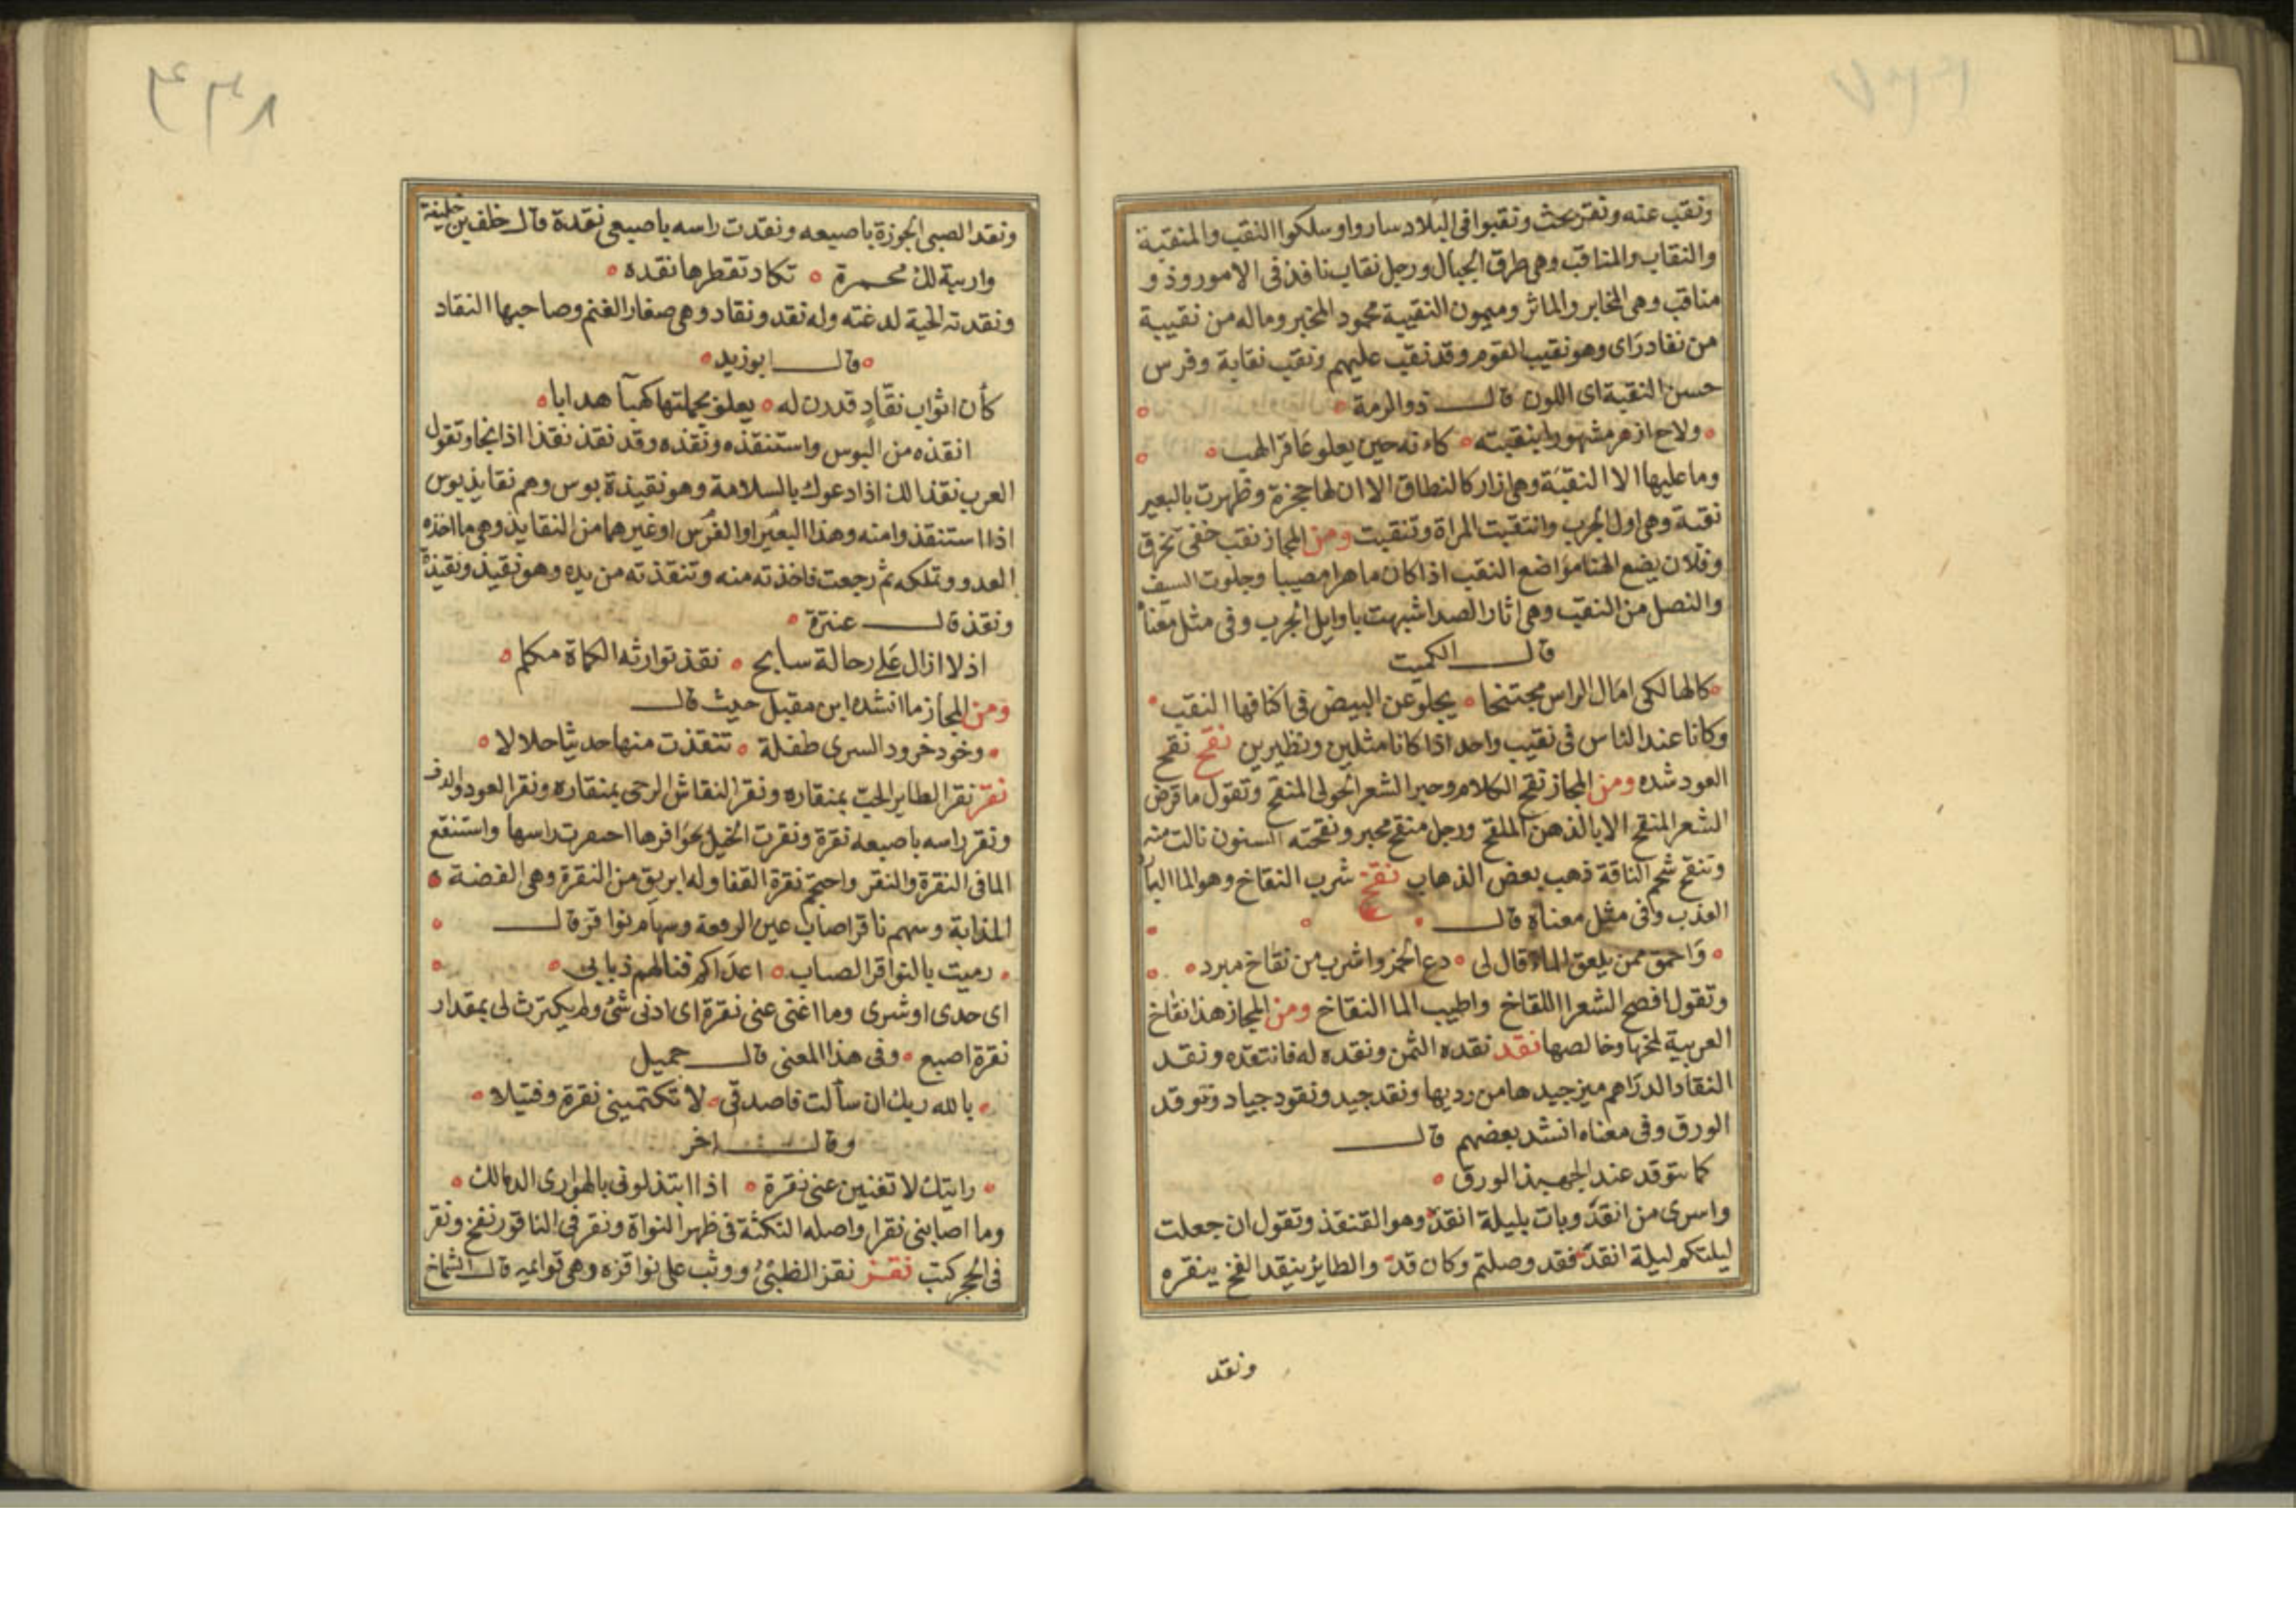 ونقب عنه ونقر بحث ونقبوا فى البلاد ساروا وسلكوا النقب والمنقبة
والنقاب والمناقب وهى طرق الجبال ورجل نقاب نافذ فى الامور وذو
مناقب وهى المخابر والماثر وميمون النقيبة محمود المخبر وماله من نقيبة
من نفاد راى وهو نقيب القوم وقد نقب عليهم ونقب نقابة وفرس
حسن النقبة اى اللون قال ذو الرمة
ولاح ازهر مشهورا بنقبته كاءنه حين يعلو عاقرا لهب
وما عليها الا النقبة وهى ازار كالنطاق الا ان لها حجزة وظهرت بالبعير
نقبة وهى اول الجرب وانتقبت المراة وتنقبت ومن المجاز نقب خفى تخرق
وفلان يضع الهنا مواضع النقب اذا كان ماهرا مصيبا وجلوت السيف
والنصل من النقب وهى اثار الصدا شبهت باوايل الجرب وفى مثل معناه
قال الكميت
كالهالكى امال الراس مجتنحا يجلو عن البيض فى اكنافها النقب
وكانا عند الناس فى نقيب واحد اذا كانا مثلين ونظيرين نقح نقح
العود شده ومن المجاز نقح الكلام وخير الشعر الحولى المنقح وتقول ما قرض
الشعر المنقح الا بالذهن الملقح ورجل منقح مجبر ونقحته السنون نالت منه
وتنقح شحم الناقة ذهب بعض الذهاب نقخ شرب النقاخ وهو الما البارد
العذب وفى مثل معناه قال
واحمق ممن يلعق الماء قال لى دع الخمر واشرب من نقاخ مبرد
وتقول افصح الشعرا اللقاخ واطيب الما النقاخ ومن المجاز هذا نقاخ
العربية لمخها وخالصها نقد نقده الثمن ونقده له فانتقده ونقد
النقاد الدراهم ميز جيدها من رديها ونقد جيد ونقود جياد وتوقد
الورق وفى معناه انشد بعضهم قال
كما توقد عند الجهبذ الورق
واسرى من انقد وبات بليلة انقد وهو القنفذ وتقول ان جعلت
ليلتكم ليلة انقد فقد وصلتم وكان قد والطاير ينقد الفخ ينقره
ونقد
٤٣٨
ونقد الصبى الجوزة باصبعه ونقدت راسه باصبعى نقدة قال خلف بن خليفة
واربية لك محمرة تكاد تقطرها نقده
ونقدته الحية لدغته وله نقد ونقاد وهى صغار الغنم وصاحبها النقاد
قال ابو زيد
كأن اثواب نقاد قدرن له يعلو بخملتها كهبآ هدابا
انقذه من البوس واستنقذه ونقذه وقد نقذ نقذا اذا نجا وتقول
العرب نقذا لك اذا دعوك بالسلامة وهو نقيذة بوس وهم نقايذ بوس
اذا استنقذوا منه وهذا البعير او الفرس او غيرهما من النقايذ وهى ما اخذه
العدو وتملكه ثم رجعت فاخذته منه وتنقذته من يده وهو نقيذ ونقيذة
ونقذ قال عنترة
اذ لا ازال على رحالة سابح نقذ توارثه الكماة مكلم
ومن المجاز ما انشده ابن مقبل حيث قال
وخود خرود السرى طفلة تنقذت منها حديثا حلالا
نقر نقر الطاير الحب بمنقاره ونقر النقاش الرحى بمنقاره ونقر العود والدف
ونقر راسه باصبعه نقرة ونقرت الخيل بحوافرها احتفرت راسها واستنقع
الما فى النقرة والنقر واحتجم نقرة القفا وله ابريق من النقرة وهى الفضة
المذابة وسهم ناقر اصاب عين الرقعة وسهام نواقر قال
رميت بالنواقر الصياب اعداكم فنالهم ذبابى
اى حدى او شرى وما اغنى عنى نقرة اى ادنى شئ ولم يكترث لى بمقدار
نقرة اصبع وفى هذا المعنى قال جميل
بالله ربك ان سألت فاصدقى لا تكتمينى نقرة وفتيلا
وقال اخر
رايتك لا تغنين عنى نقرة اذا ابتذلونى بالهوارى الدمالك
وما اصابنى نقرا واصله النكتة فى ظهر النواة ونقر فى الناقور نفخ ونقر
فى الحجر كتب نقز نقز الظبئ ووثب على نواقزه وهى قوايمه قال الشماخ